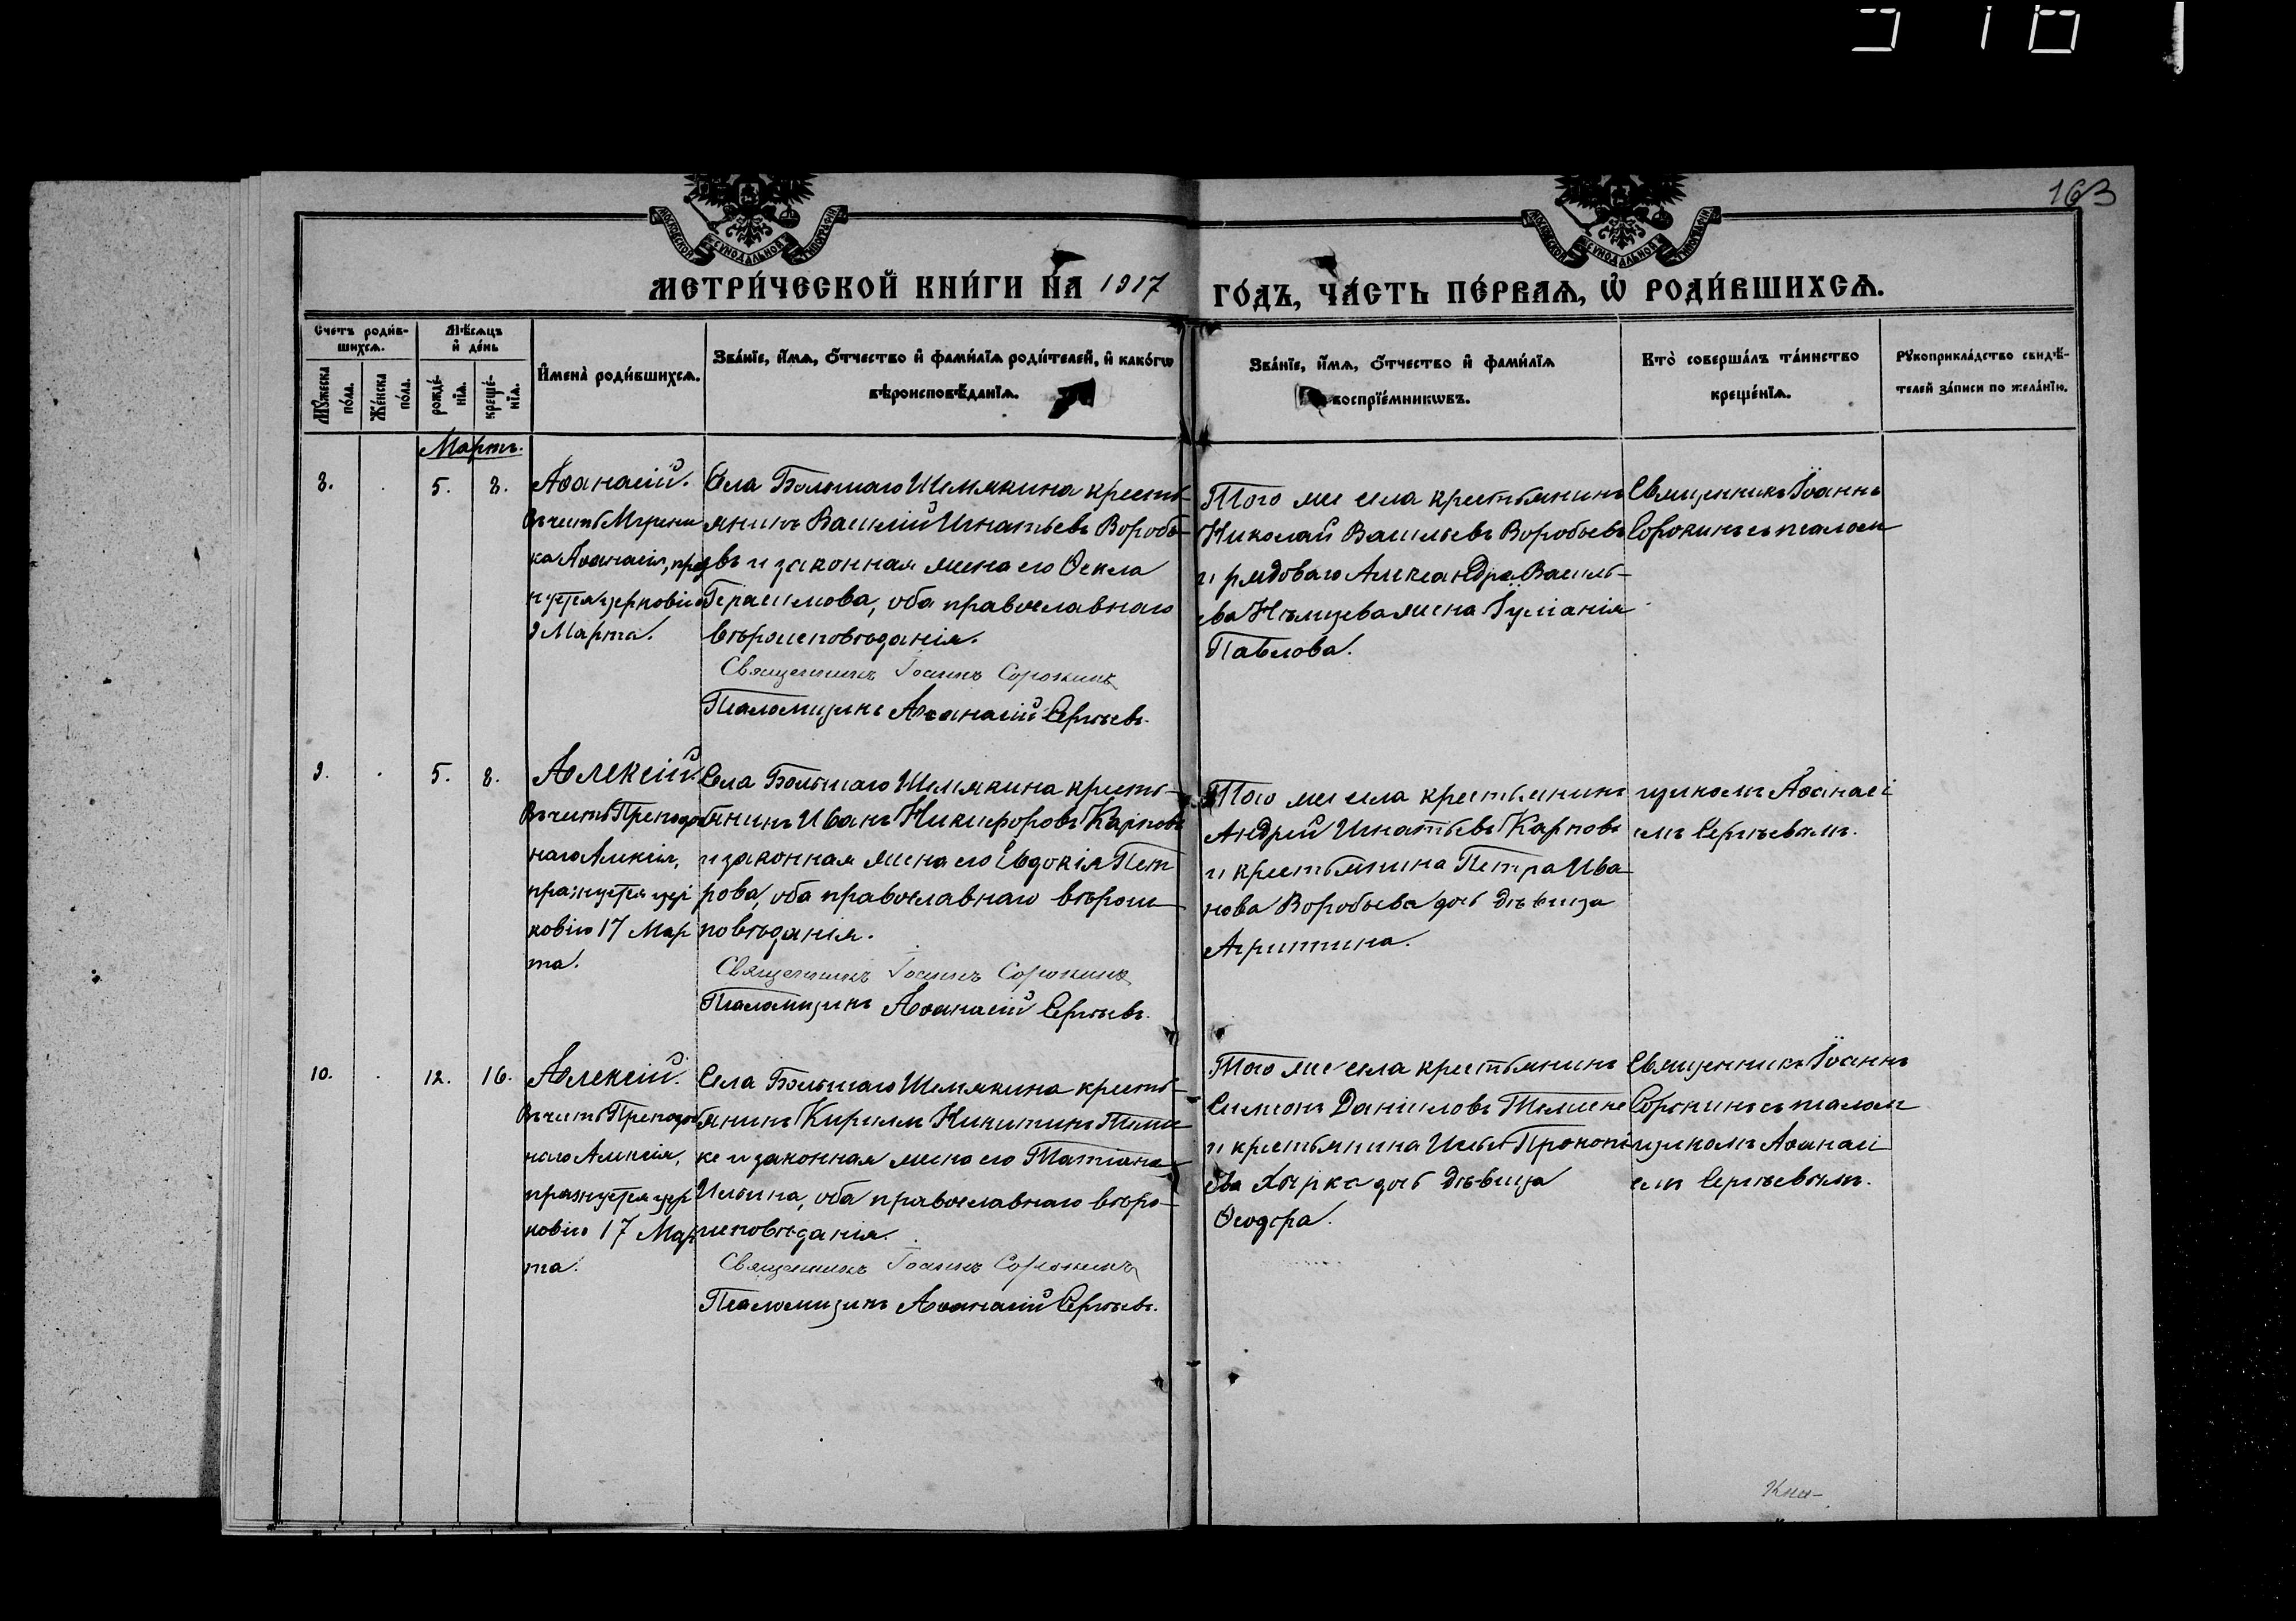 163
МОСКОВСКОЙ СѴНОДАЛЬНОЙ ТИПОГРАФІИ
МОСКОВСКОЙ СѴНОДАЛЬНОЙ ТИПОГРАФІИ
МЕТРИ́ЧЕСКОЙ КНИ́ГИ НА 1917 ГО́ДЪ, ЧА́СТЬ ПЕ́РВАѦ, Ѡ҆ РОДИ́ВШИХСѦ.
Счетъ роди́в-
шихсѧ.
Мѣ́сѧцъ
и҆ де́нь
Мꙋ́жеска
по́ла.
Же́нска
по́ла.
рожде́-
нїѧ.
креще́-
нїѧ.
И҆мена̀ роди́вшихсѧ.
Зва́нїе, и҆́мѧ, ѻ҆́тчество и҆ фами́лїѧ роди́телей, и҆ како́гѡ
вѣроисповѣ́данїѧ.
Зва́нїе, и҆́мѧ, ѻ҆́тчество и҆ фами́лїѧ
воспрїе́мникѡвъ.
Кто̀ соверша́лъ та́инство
креще́нїѧ.
Рꙋкоприкла́дство свидѣ́-
телей за́писи по жела́нїю.
Мартъ.
8.
5.
8.
Аѳанасій.
Въ честь Мучени
ка Аѳанасія, праз
нуется церковію
9 Марта.
Села Большаго Шемякина кресть-
янинъ Василій Игнатьевъ Воробь-
евъ и законная жена его Ѳекла
Герасимова, оба православнаго
вѣроисповѣданія.
Священникъ Іоаннъ Сорокинъ
Псаломщикъ Аѳанасій Сергѣевъ.
Того же села крестьянинъ
Николай Васильевъ Воробьевъ
и рядоваго Александра Василь-
ева Нѣмцева жена Іуліанія
Павлова.
Священникъ Іоаннъ
Сорокинъ съ псалом
9.
5.
8.
Алексій.
Въ честь Преподоб
наго Алексія,
празнуется цер
ковію 17 Мар
та.
Села Большаго Шемякина кресть-
янинъ Иванъ Никифоровъ Карповъ
и законная жена его Евдокія Пет
рова, оба православнаго вѣроис
повѣданія.
Священникъ Іоаннъ Сорокинъ
Псаломщикъ Аѳанасій Сергѣевъ.
Того же села крестьянинъ
Андрей Игнатьевъ Карповъ
и крестьянина Петра Ива
нова Воробьева дочь дѣвица
Агриппина.
щикомъ Аѳанасі
емъ Сергѣевымъ.
10.
12.
16.
Алексій.
Въ честь Преподоб
наго Алексія,
празнуется цер
ковію 17 Мар
та.
Села Большаго Шемякина кресть-
янинъ Кириллъ Никитинъ
и законная жена его Татіана
Ильина, оба православнаго вѣро-
исповѣданія.
Священникъ Іоаннъ Сорокинъ
Псаломщикъ Аѳанасій Сергѣевъ.
Того же села крестьянинъ
Симеонъ Даниловъ
и крестьянина Ильи Прокопі
ева дочь дѣвица
Ѳеодора.
Священникъ Іоаннъ
Сорокинъ съ псалом
щикомъ Аѳанасі
емъ Сергѣевымъ.